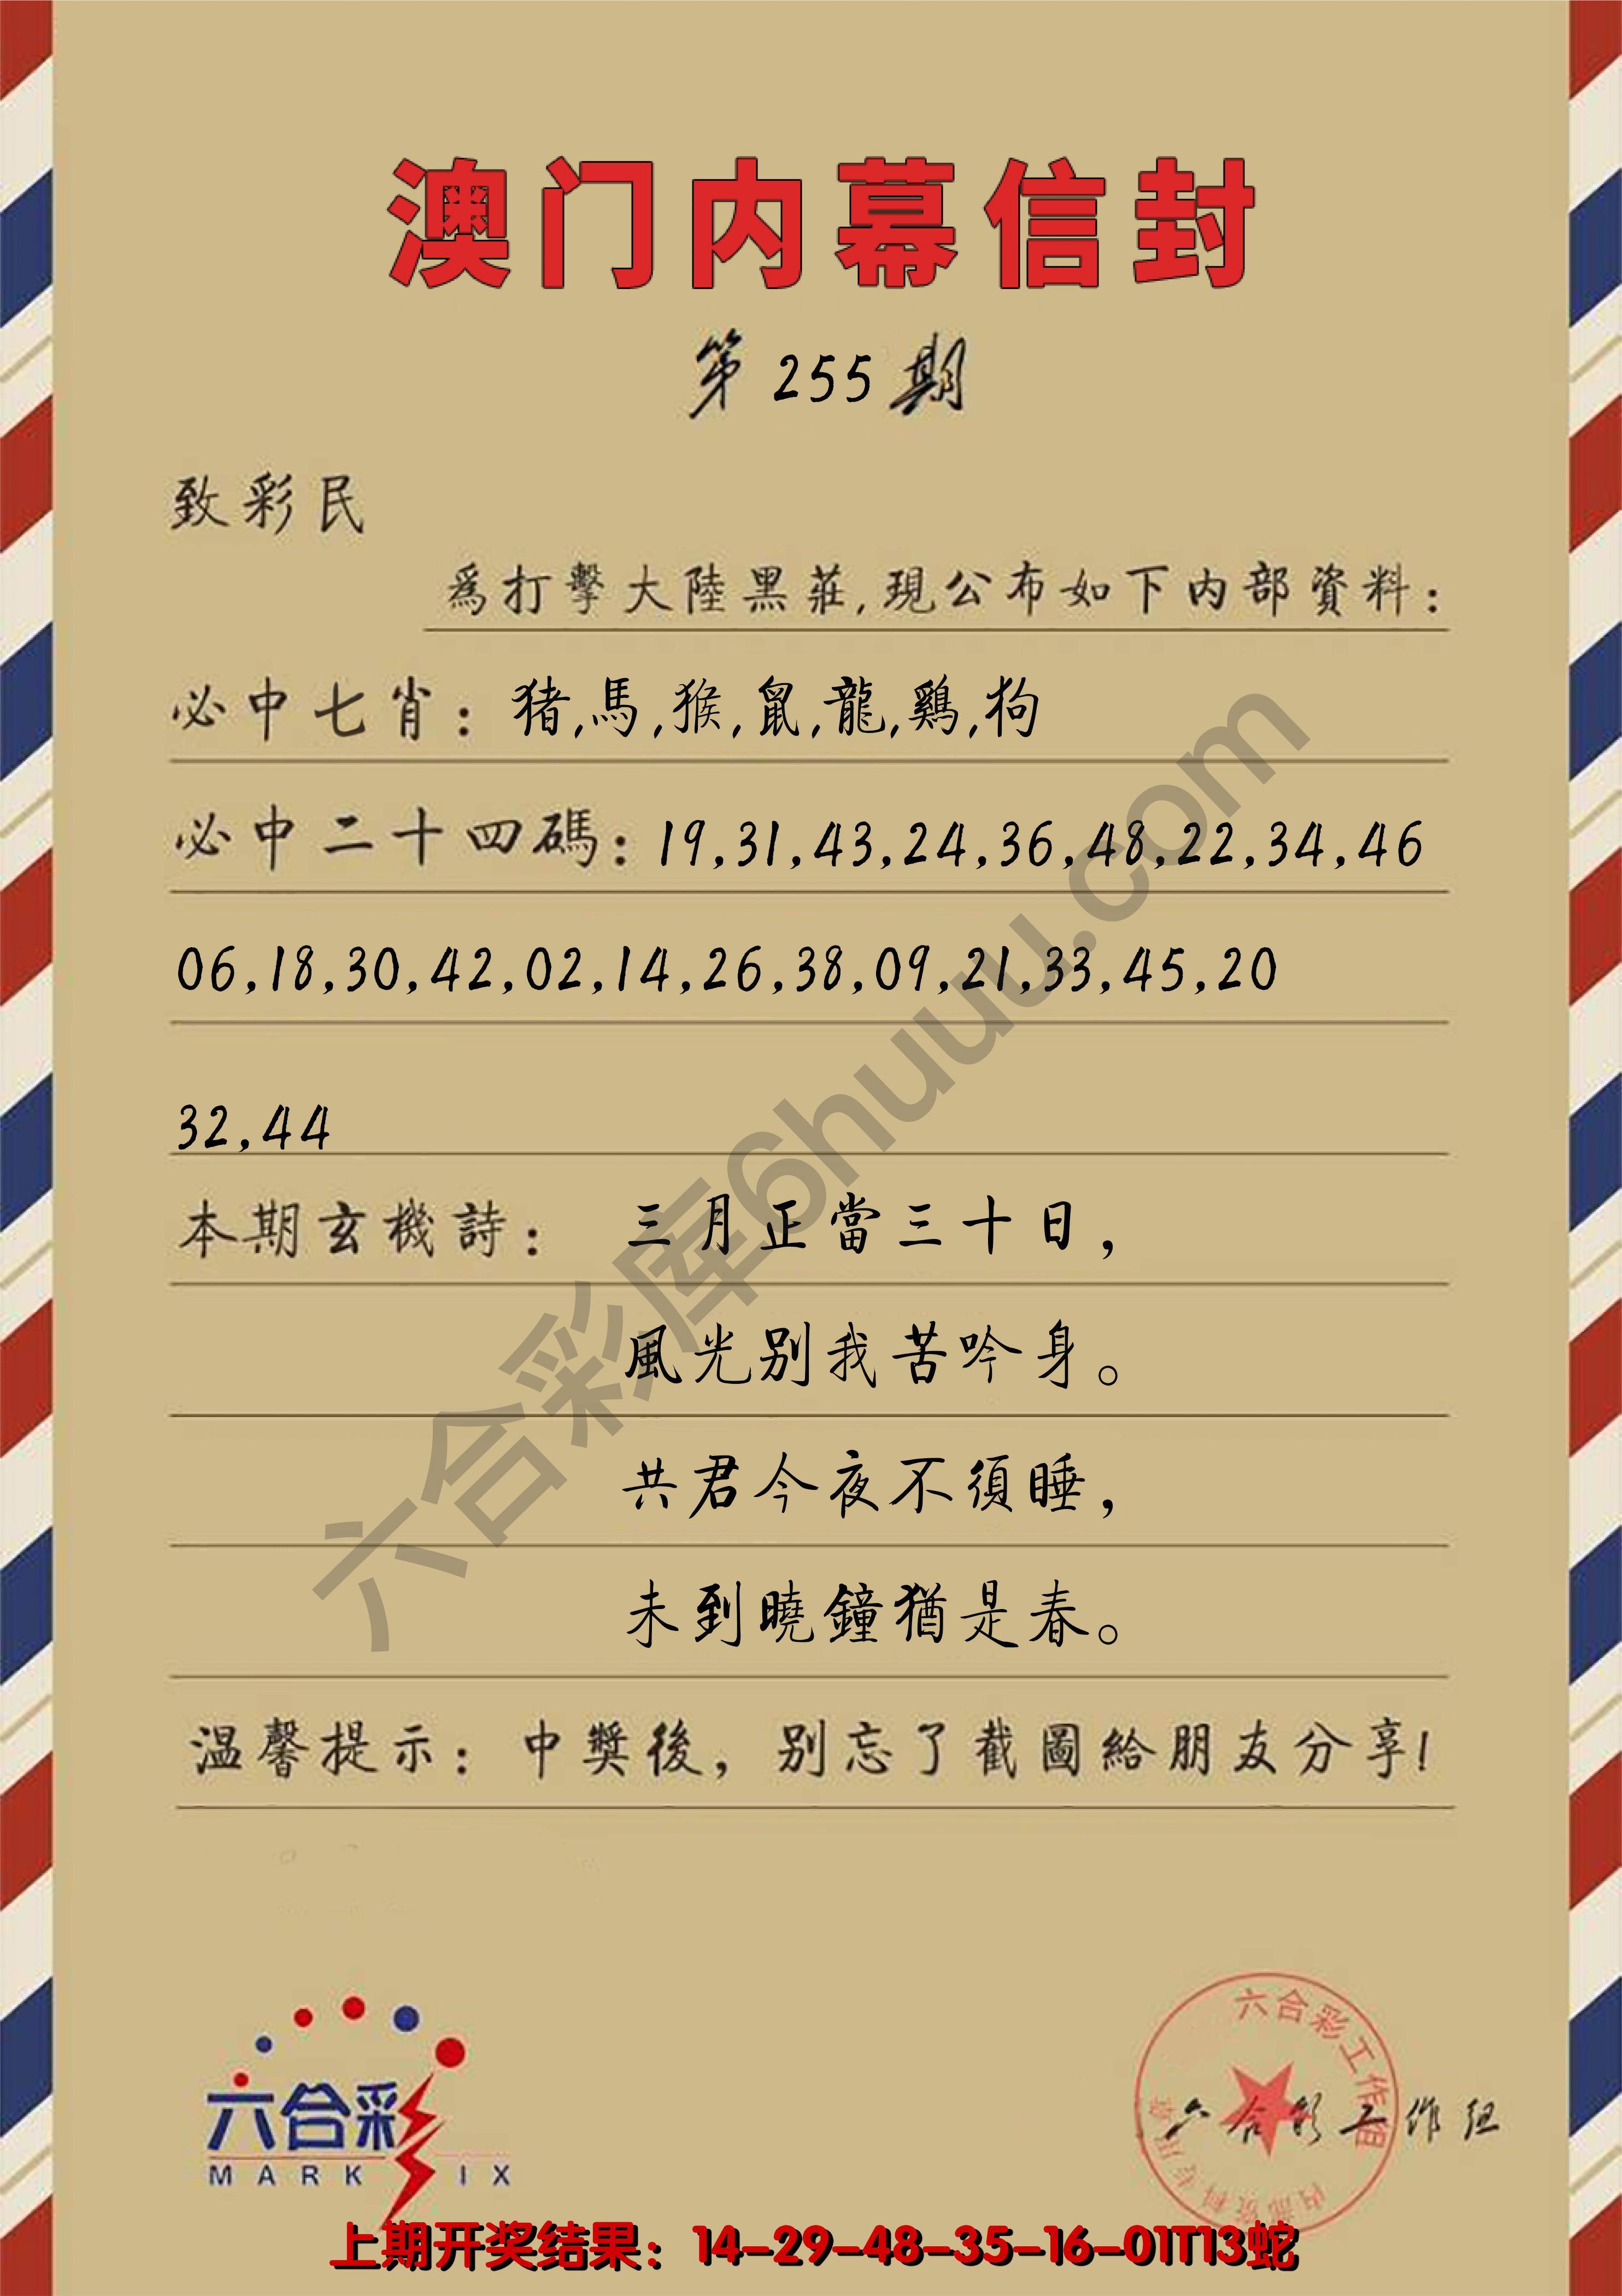 澳门内幕信封
第255期
致彩民
爲打擊大陸黑莊,現公布如下内部資料:
必中七肖: 猪,馬,猴,鼠,龍,鷄,狗
必中二十四碼: 19,31,43,24,36,48,22,34,46
06,18,30,42,02,14,26,38,09,21,33,45,20
32,44
本期玄機詩: 三月正當三十日,
風光别我苦吟身。
共君今夜不須睡,
未到曉鐘猶是春。
温馨提示: 中獎後, 别忘了截圖給朋友分享!
六合彩库6huuu.com
六合彩
MARK IX
六合彩工作组
六合彩工作组
上期开奖结果: 14-29-48-35-16-01T13蛇